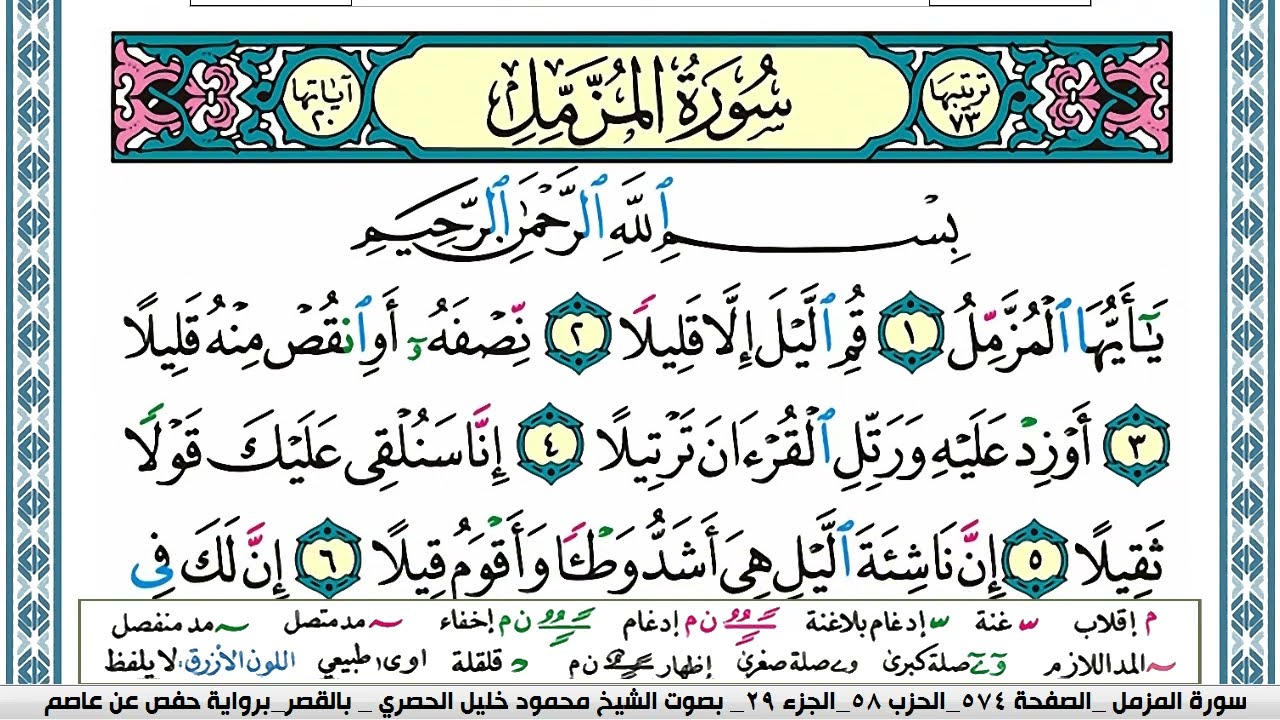 ترتيبها ٧٣ سُورَةُ المُزَّمِّل آياتها ٢٠
بِسْمِ ٱللَّهِ ٱلرَّحْمَٰنِ ٱلرَّحِيمِ
يَٰٓأَيُّهَا ٱلْمُزَّمِّلُ ١ قُمِ ٱلَّيْلَ إِلَّا قَلِيلًا ٢ نِّصْفَهُۥٓ أَوِ ٱنقُصْ مِنْهُ قَلِيلًا
٣ أَوْ زِدْ عَلَيْهِ وَرَتِّلِ ٱلْقُرْءَانَ تَرْتِيلًا ٤ إِنَّا سَنُلْقِى عَلَيْكَ قَوْلًا
ثَقِيلًا ٥ إِنَّ نَاشِئَةَ ٱلَّيْلِ هِىَ أَشَدُّ وَطْـًٔا وَأَقْوَمُ قِيلًا ٦ إِنَّ لَكَ فِى
م إقلاب غنة إدغام بلاغنة ن م إدغام ن م إخفاء مد متصل مد منفصل
المد اللازم صلة كبرى و ے صلة صغرى إظهار ن م قلقلة اوى طبيعي اللون الأزرق: لا يلفظ
سورة المزمل _الصفحة ٥٧٤_الحزب ٥٨_الجزء ٢٩_ بصوت الشيخ محمود خليل الحصري _ بالقصر_برواية حفص عن عاصم